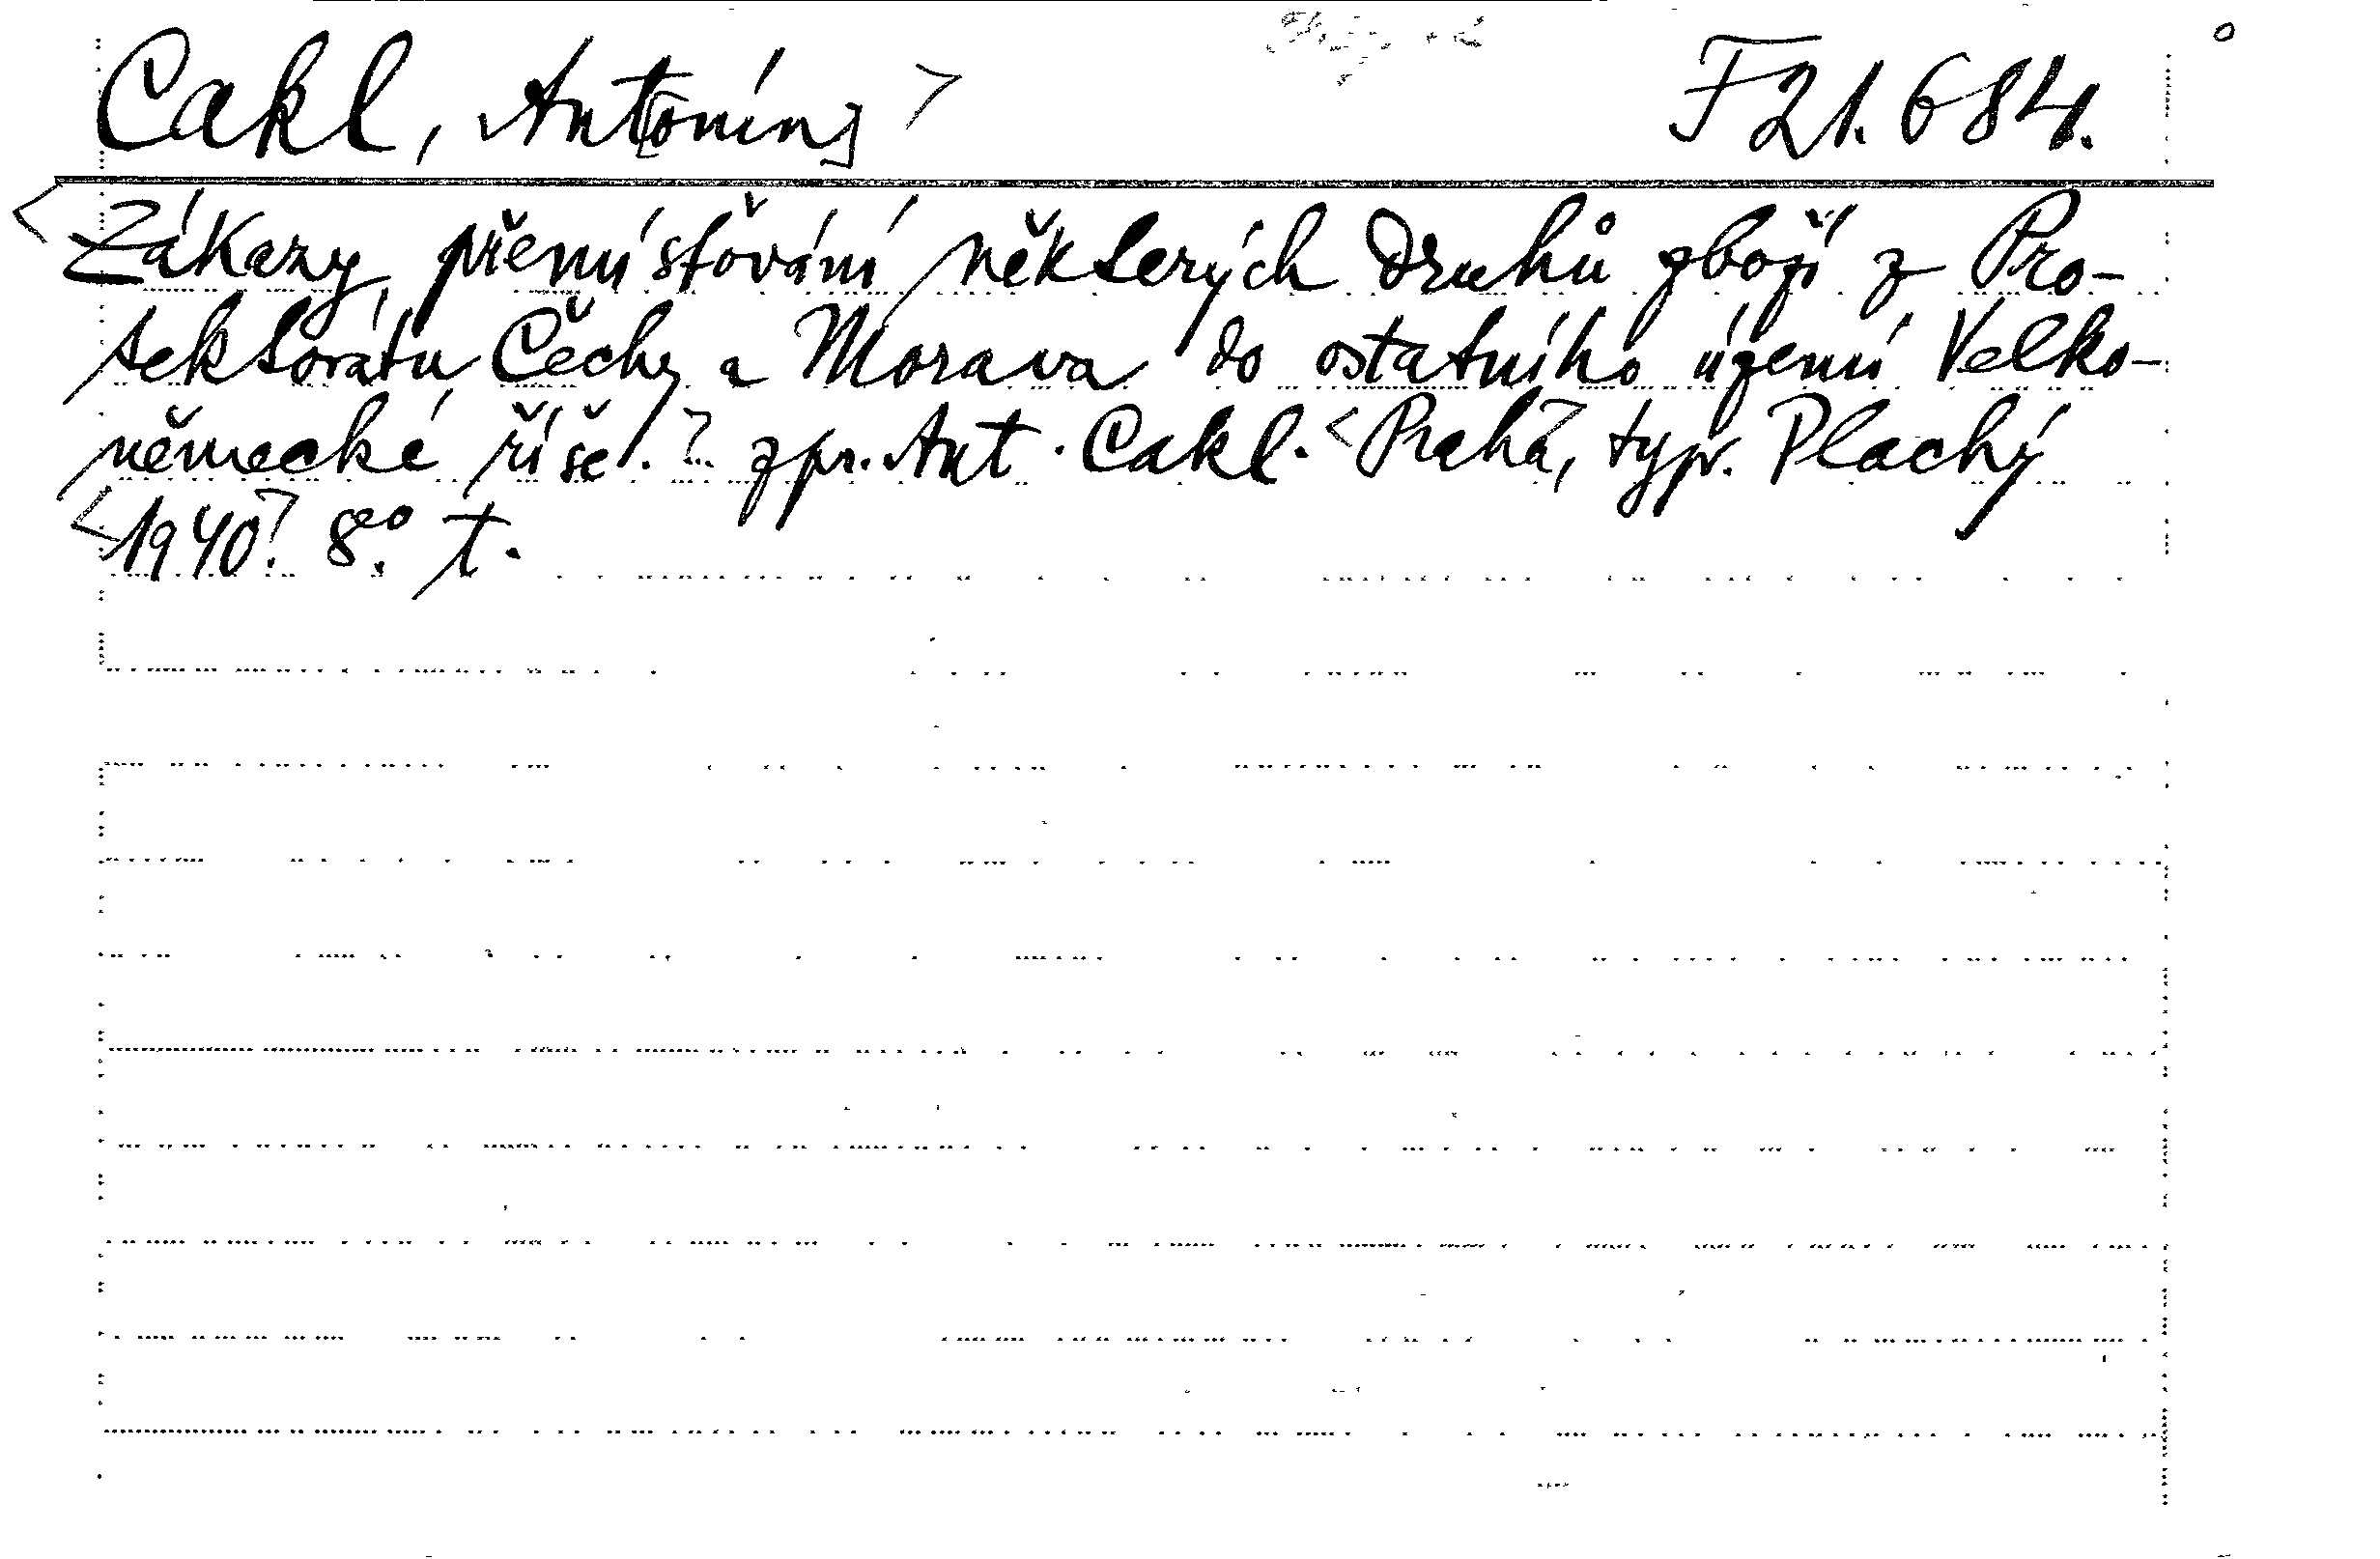 Cakl, Ant[onín] > F 21.684.
<Zákazy přemísťování některých druhů zboží z Pro-
tektorátu Čechy a Morava do ostatního území Velko-
německé říše.> zpr. Ant. Cakl. <Praha>, typ. Plachý
<1940>. 8°. T.